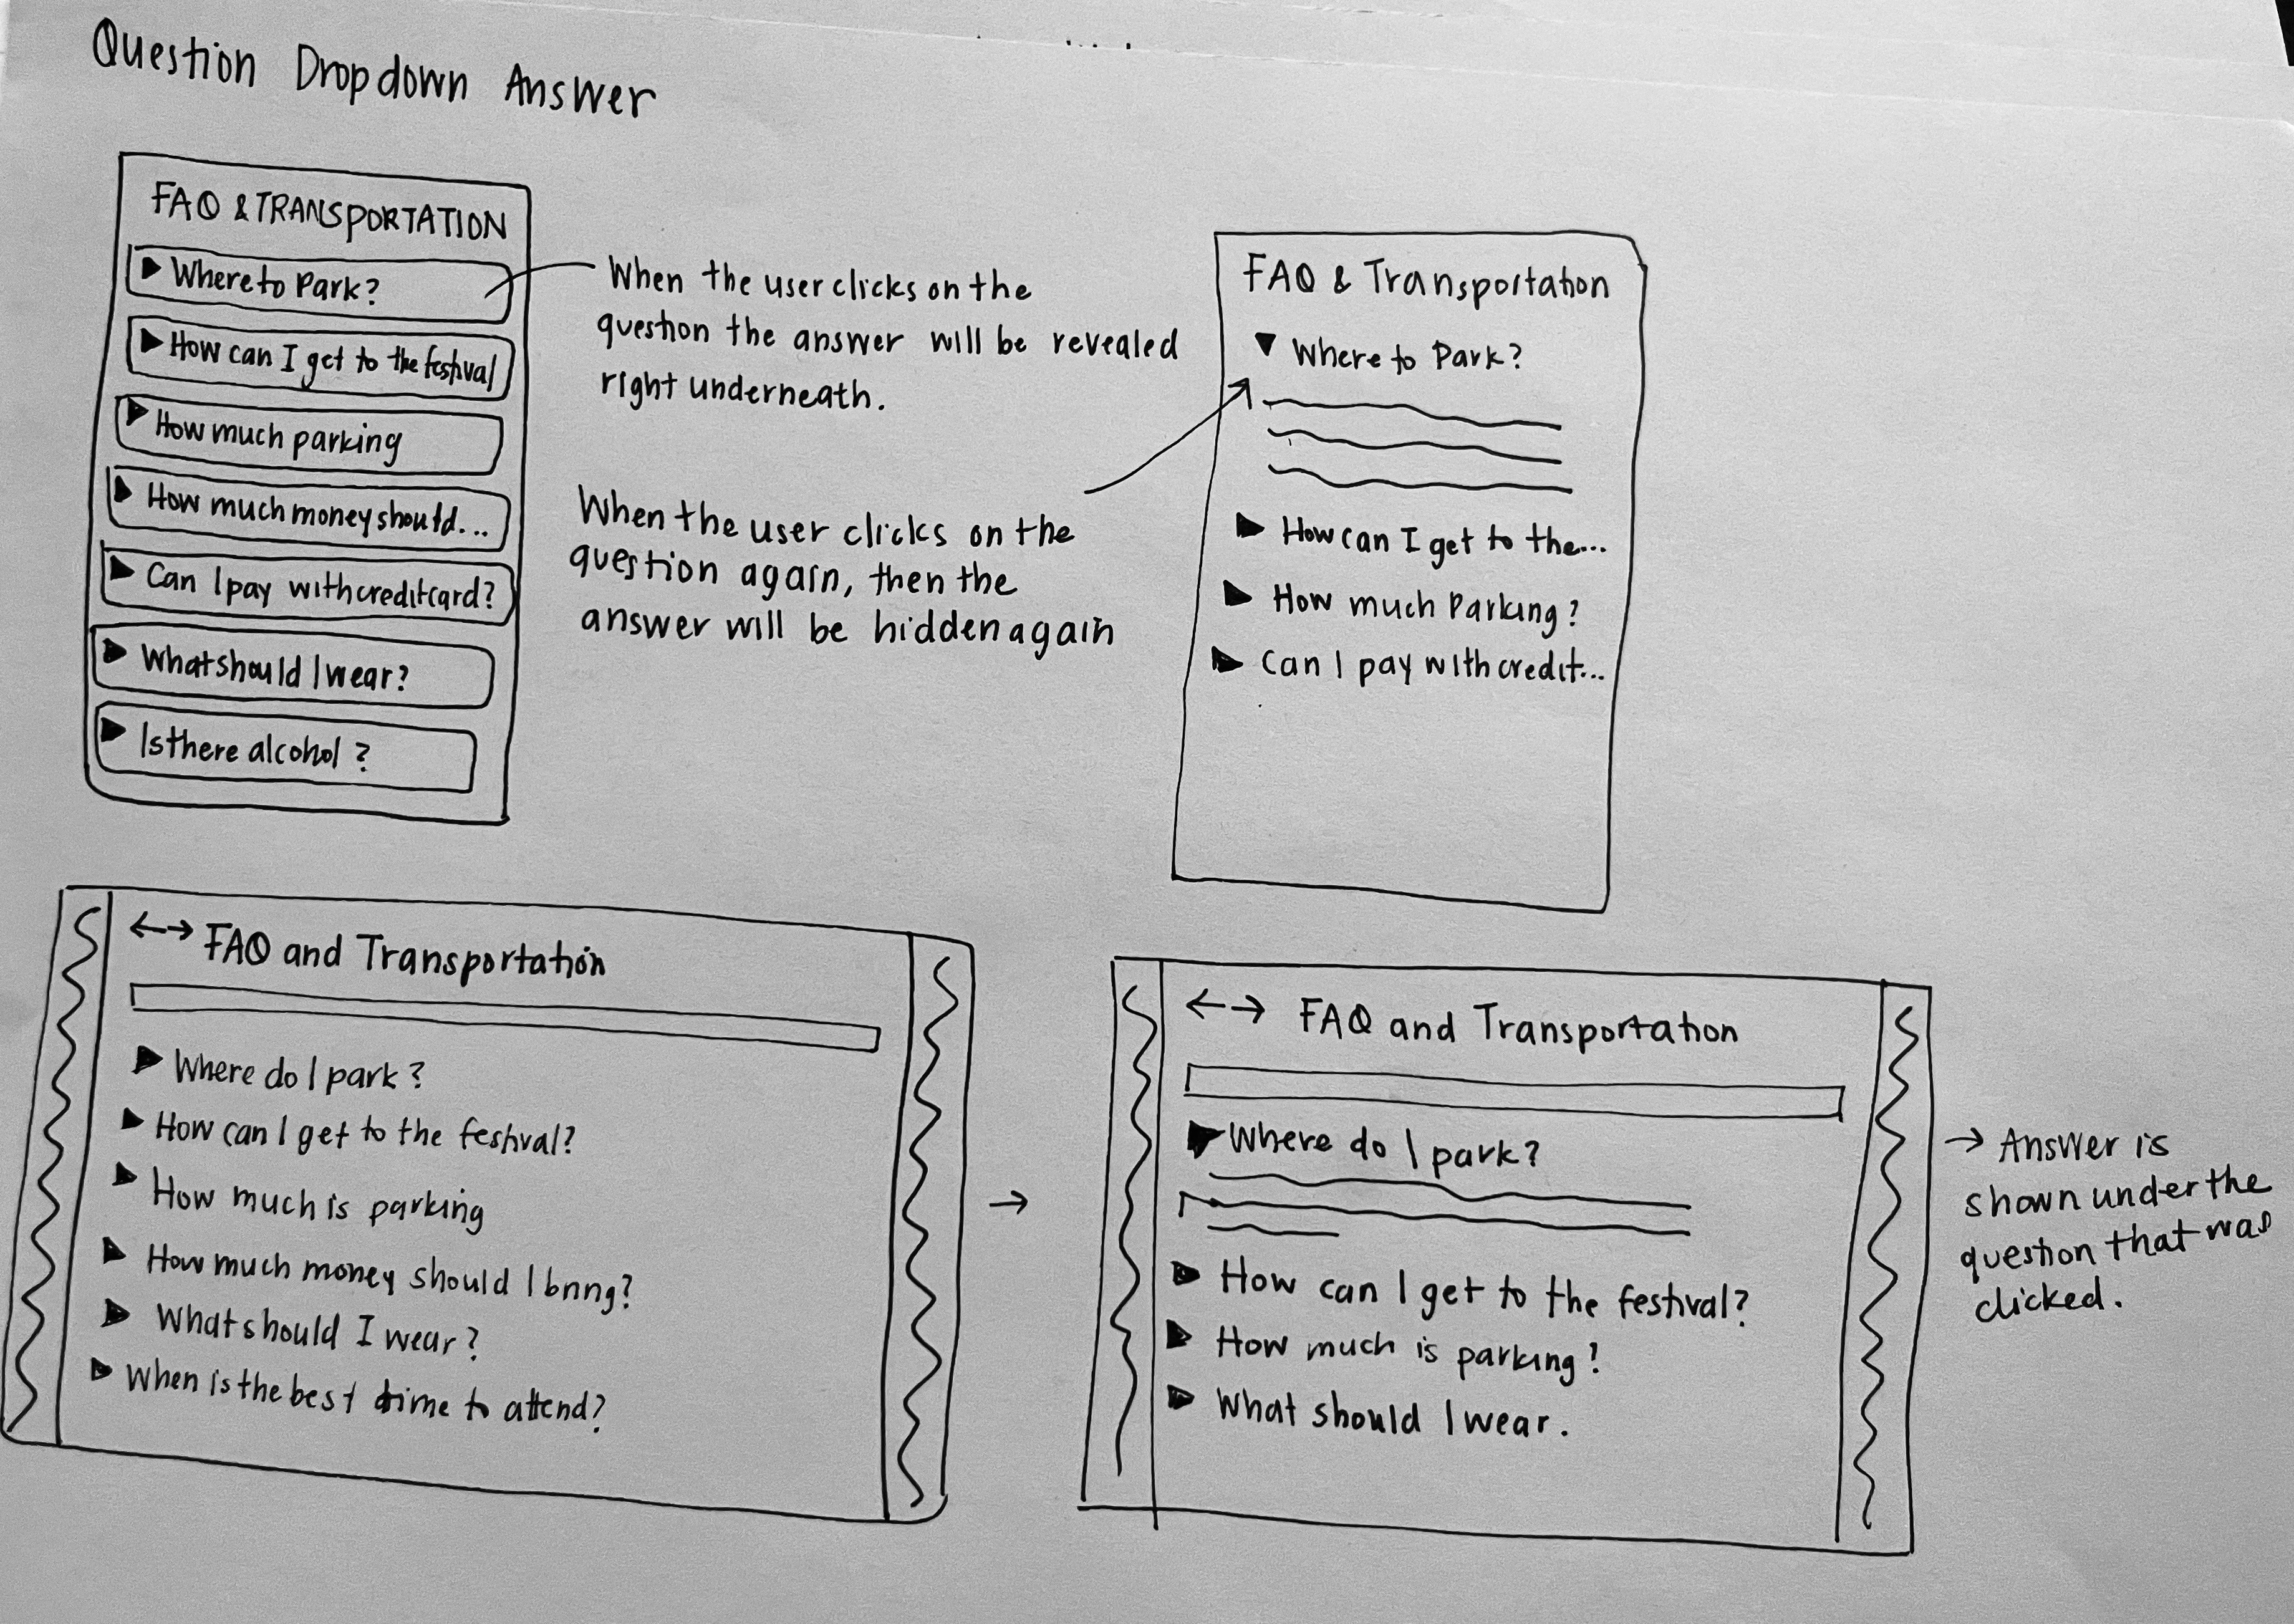 Question Dropdown Answer
FAQ & TRANSPORTATION
Where to Park?
How can I get to the festival
How much parking
How much money should...
Can I pay with creditcard?
What should I wear?
Is there alcohol?
When the user clicks on the
question the answer will be revealed
right underneath.
When the user clicks on the
question again, then the
answer will be hidden again
FAQ & Transportation
Where to Park?
How can I get to the...
How much Parking?
Can I pay with credit...
FAQ and Transportation
Where do I park?
How can I get to the festival?
How much is parking
How much money should I bring?
What should I wear?
When is the best time to attend?
FAQ and Transportation
Where do I park?
How can I get to the festival?
How much is parking?
What should I wear.
→ Answer is
shown under the
question that was
clicked.